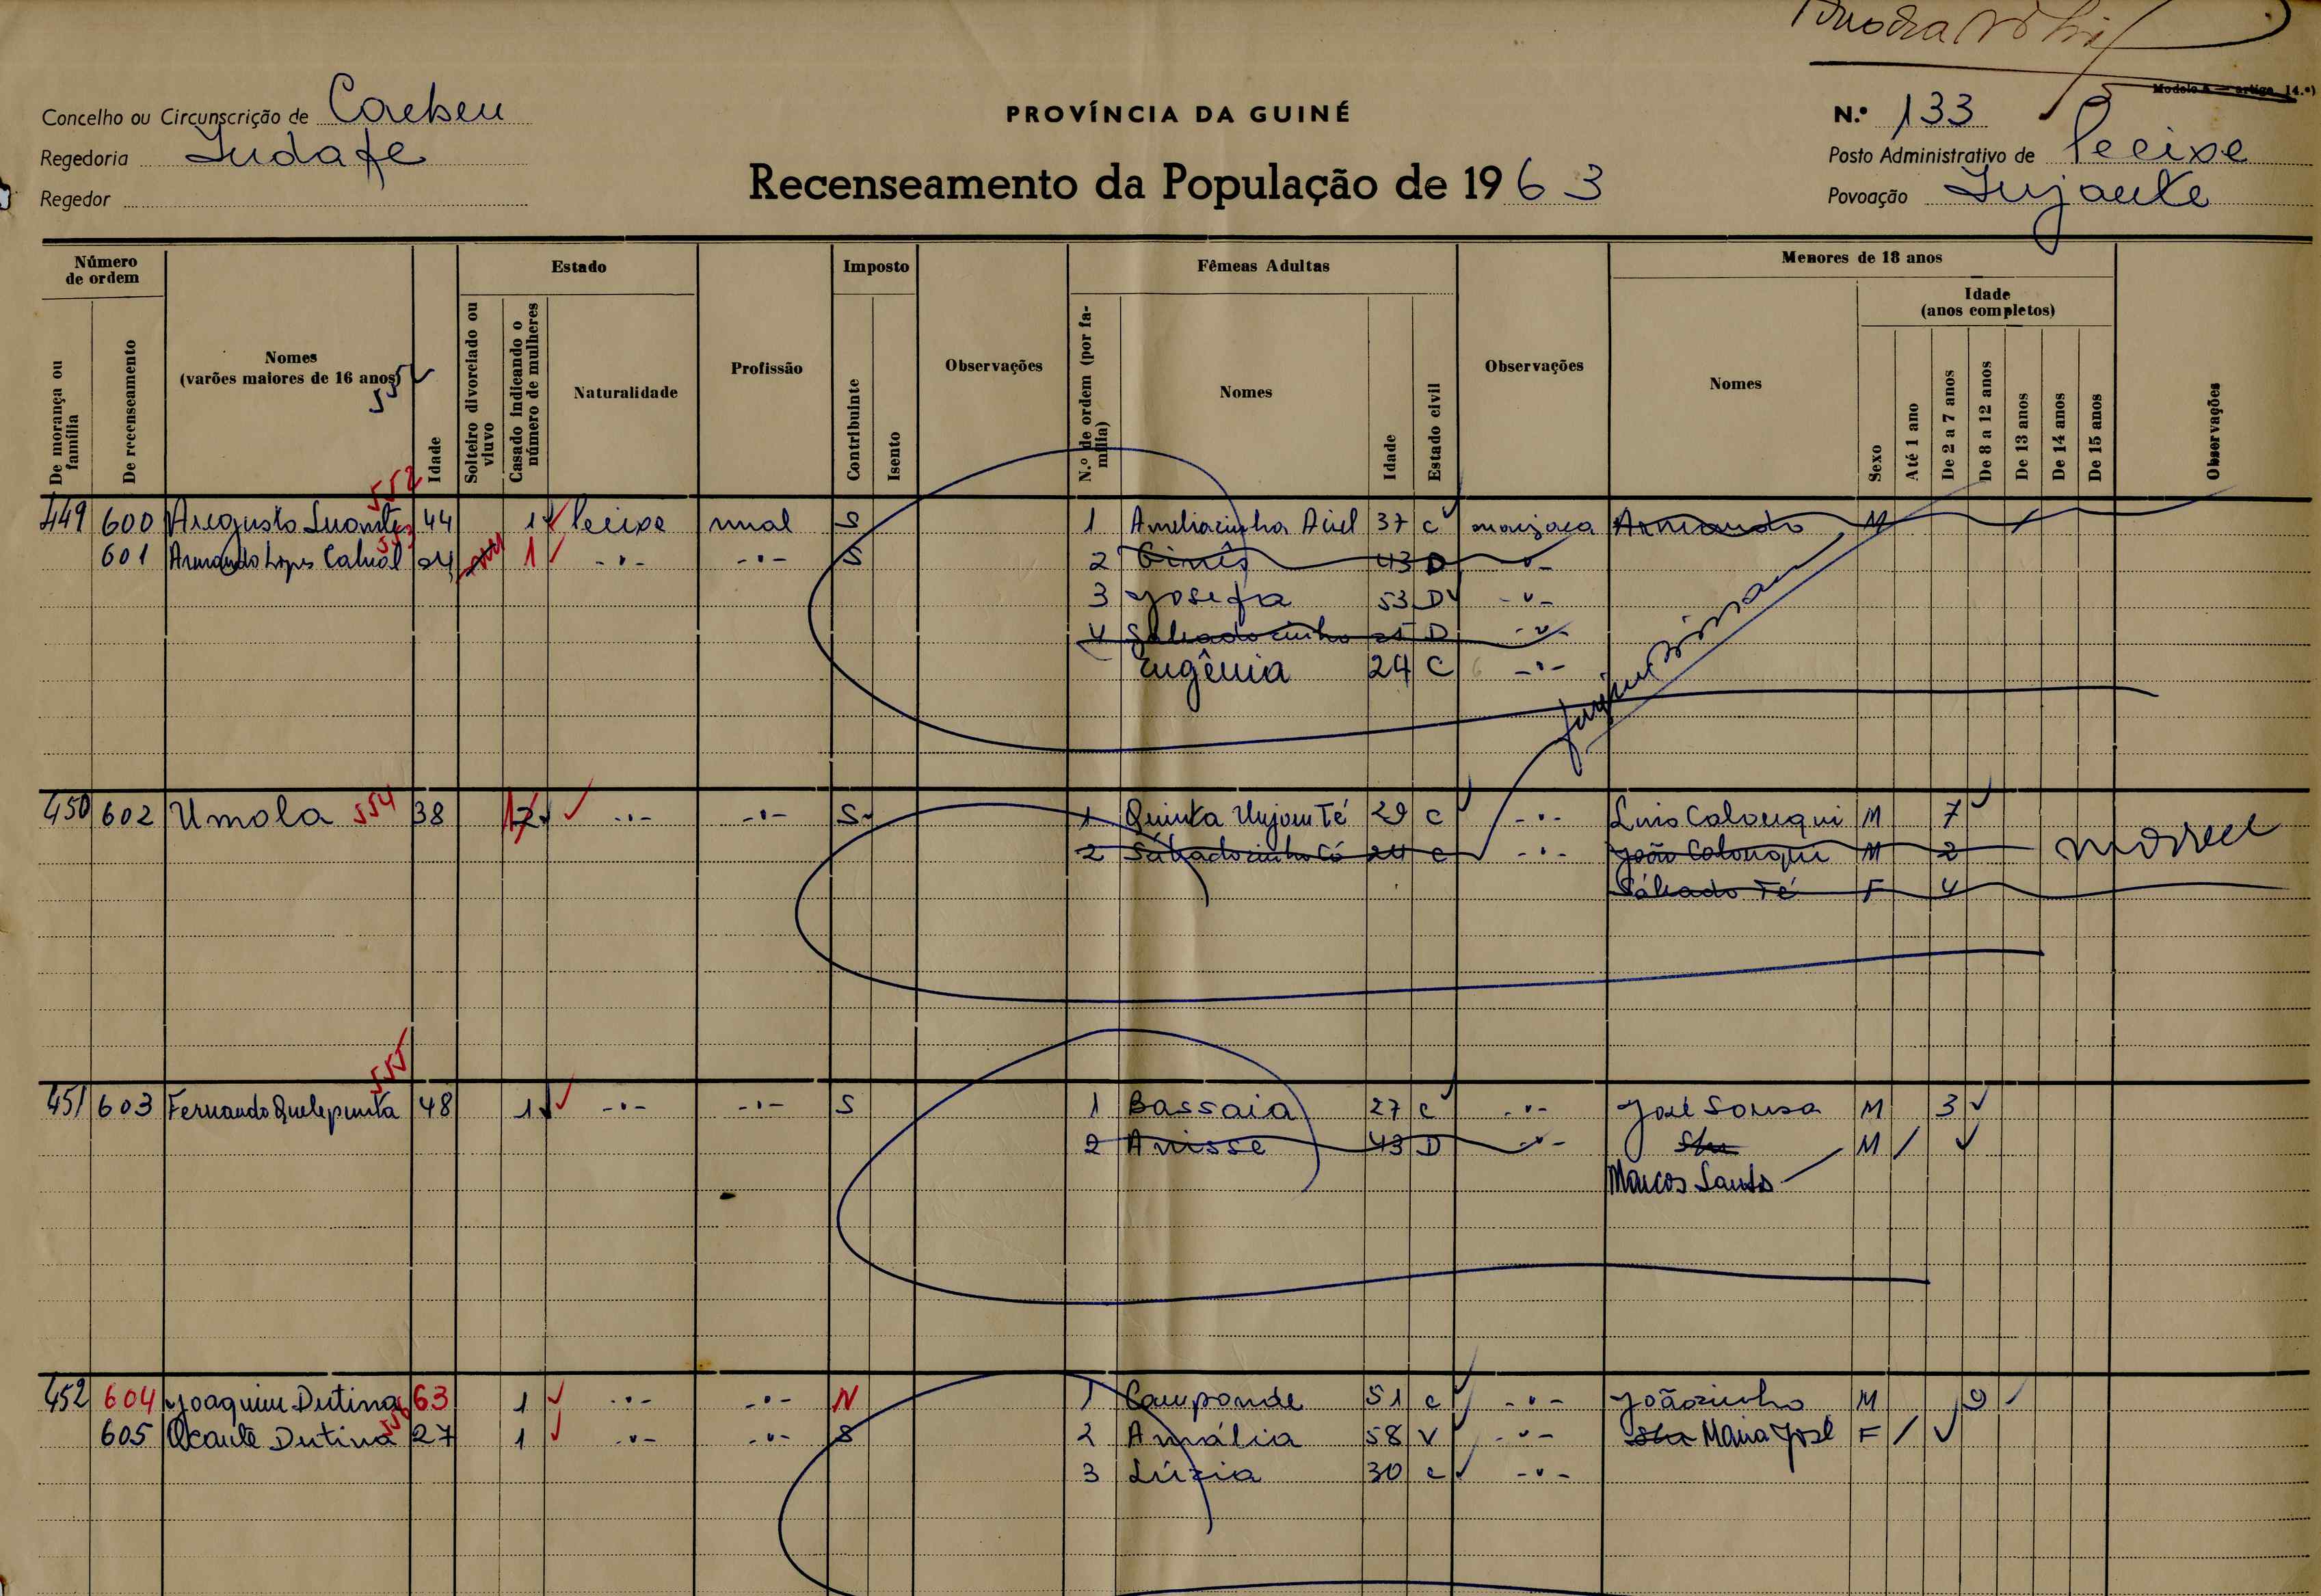 Modelo
Concelho ou Circunscrição de
PROVÍNCIA DA GUINÉ
N.º 133
Regedoria
Posto Administrativo de Pecixe
Regedor
Recenseamento da População de 1963
Povoação
Número de ordem
Estado
Imposto
Fêmeas Adultas
Menores de 18 anos
De morança ou família
De recenseamento
Nomes
(varões maiores de 16 anos)
Idade
Solteiro divorciado ou viuvo
Casado indicando o número de mulheres
Naturalidade
Profissão
Contribuinte
Isento
Observações
N.º de ordem (por família)
Nomes
Idade
Estado civil
Observações
Nomes
Sexo
Idade
(anos completos)
Até 1 ano
De 2 a 7 anos
De 8 a 12 anos
De 13 anos
De 14 anos
De 15 anos
Observações
552
449 600 Augusto 44 1 Pecixe S 1 37 C Armando M
601 Armando Lopes Cabral 24 1 -"- -"- S 2 43 D -"-
3 Josefa 53 D -"-
4 D -"-
Eugênia 24 C -"-
450 602 Umola 554 38 -"- -"- S 1 Quinta 29 C -"- M 7
2 24 C -"- João M 2
Sábado Té F 4
555
451 603 Fernando 48 1 -"- -"- S 1 Bassaia 27 C -"- José Sousa M 3
2 Anisse 43 D -"- M
Marcos Santos
452 604 Joaquim Dutina 63 1 -"- -"- N 1 Camponde 51 C -"- Joãozinho M 9
605 Ocante Dutina 27 1 -"- -"- S 2 Amália 58 V -"- Maria José F
3 Lúzia 30 C -"-